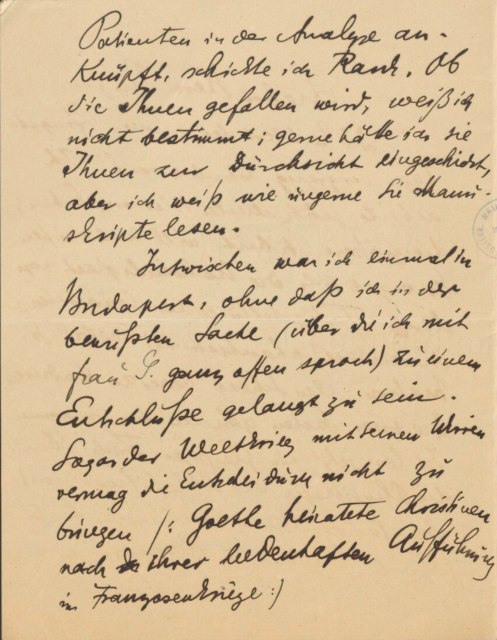 Patienten in der Analyse an-
knüpft, schickte ich Rank. Ob
die Ihnen gefallen wird, weiß ich
nicht bestimmt; gerne hätte ich sie
Ihnen zur Durchsicht eingeschickt,
aber ich weiß wie ungerne Sie Manu-
skripte lesen.
Inzwischen war ich einmal in
Budapest, ohne daß ich in der
bewußten Sache (über die ich mit
Frau G. ganz offen sprach) zu einem
Entschluße gelangt zu sein.
Sogar der Weltkrieg mit seinen Wirren
vermag die Entscheidung nicht zu
bringen /: Goethe heiratete Christinen
nach ihrer heldenhaften Aufführung
im Franzosenkriege :/